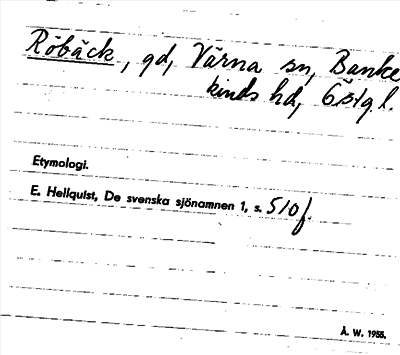 Röbäck, gd, Värna sn, Banke
kinds hd, Östg.l.
Etymologi.
E. Hellquist, De svenska sjönamnen 1, s. 510 f.
Å. W. 1955.